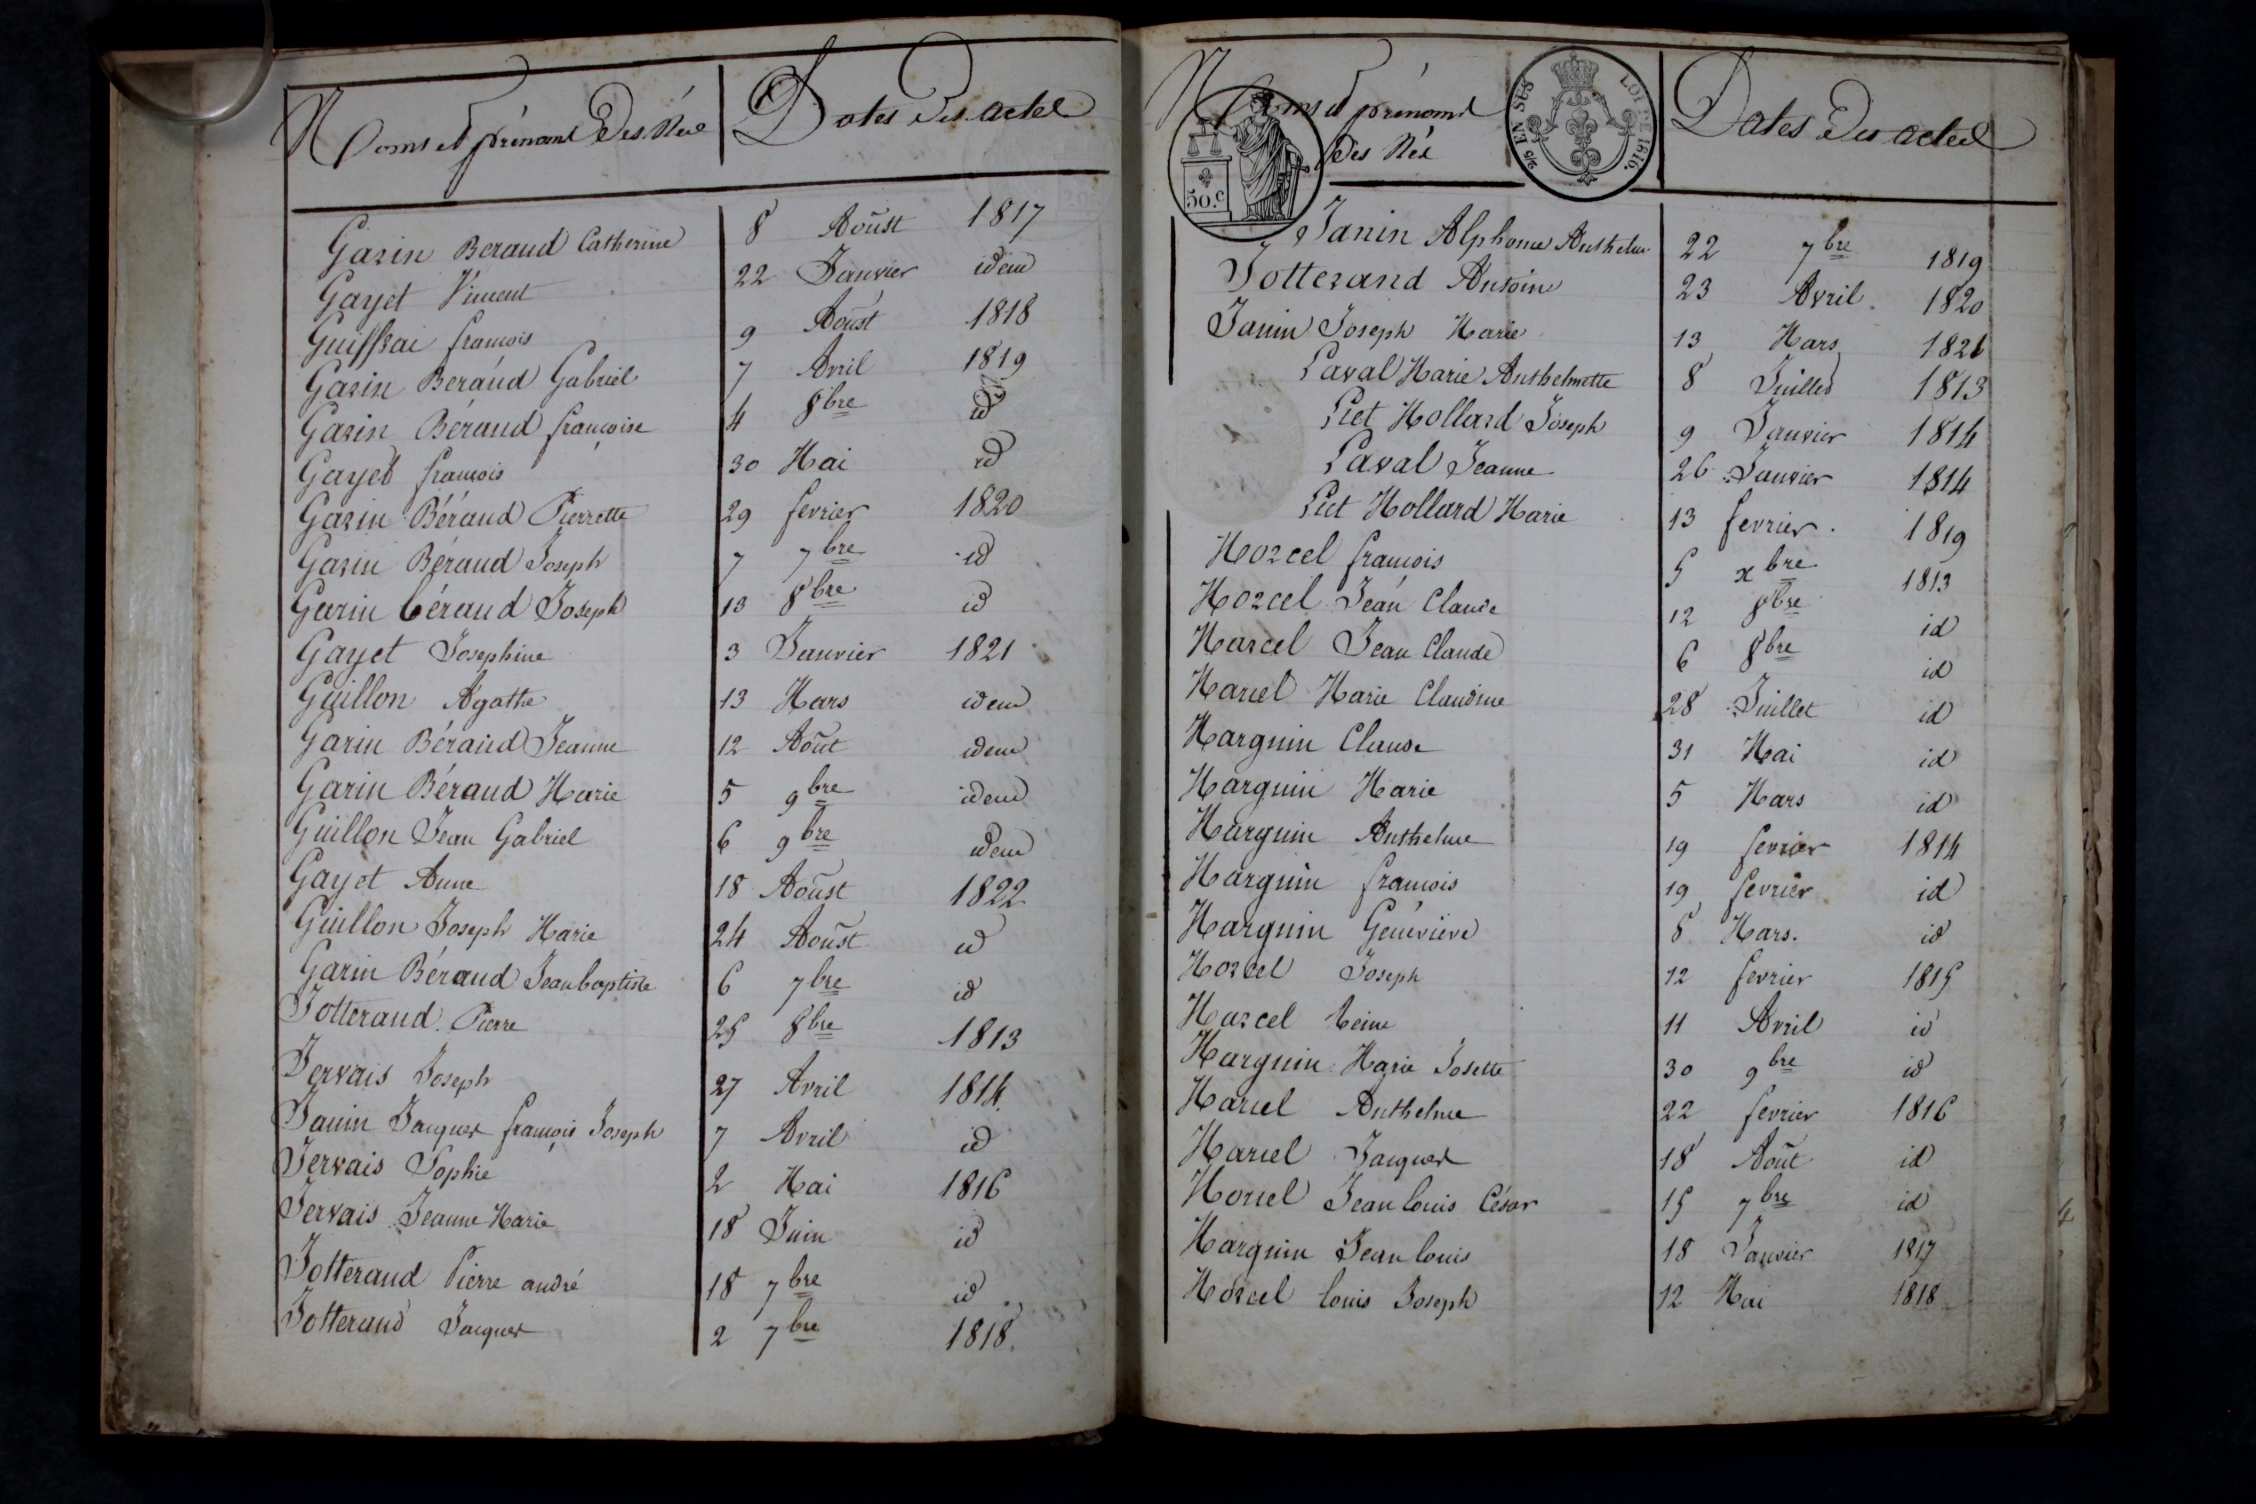 Noms et prénoms Des Nés Dates Des actes
Garin Beraud Catherine 8 Aoust 1817
Gayet Vincent 22 Janvier idem
françois 9 Aoust 1818
Garin Beraud Gabriel 7 Avril 1819
Garin Béraud françoise 4 8bre id
Gayet françois 30 Mai id
Garin Béraud Pierrette 29 fevrier 1820
Garin Béraud Joseph 7 7bre id
Garin béraud Joseph 13 8bre id
Gayet Josephine 3 Janvier 1821
Guillon Agathe 13 Mars idem
Garin Béraud Jeanne 12 Aout idem
Garin Béraud Marie 5 9bre idem
Guillon Jean Gabriel 6 9bre idem
Gayet Anne 18 Aoust 1822
Guillon Joseph Marie 24 Aoust id
Garin Béraud Jeanbaptiste 6 7bre id
Jotterand Pierre 25 8bre 1813
Jervais Joseph 27 Avril 1814
Janin Jacques françois Joseph 7 Avril id
Jervais Sophie 2 Mai 1816
Jervais Jeanne Marie 18 Juin id
Jotterand Pierre andré 18 7bre id
Jotterand Jacques 2 7bre 1818
Noms et prénoms Dates Des actes
Des Nés
EN SUS LOI DE 1816.
50.c
Janin Alphonse Anthelme 22 7bre 1819
Jotterand Antoine 23 Avril 1820
Janin Joseph Marie 13 Mars 1821
Laval Marie Anthelmette 8 Juillet 1813
Liet Mollard Joseph 9 Janvier 1814
Laval Jeanne 26 Janvier 1814
Liet Mollard Marie 13 fevrier 1819
Morcel françois 5 xbre 1813
Morcel Jean Claude 12 8bre id
Marcel Jean Claude 6 8bre id
Marcel Marie Claudine 28 Juillet id
Marguin Claude 31 Mai id
Marguin Marie 5 Mars id
Marguin Anthelme 19 fevrier 1814
Marguin françois 19 fevrier id
Marguin Geneviève 8 Mars id
Morcel Joseph 12 fevrier 1815
Marcel Reine 11 Avril id
Marguin Marie Josette 30 9bre id
Marcel Anthelme 22 fevrier 1816
Marcel Jacques 18 Août id
Morcel Jean louis César 15 7bre id
Marguin Jean louis 18 Janvier 1817
Morcel louis Joseph 12 Mai 1818